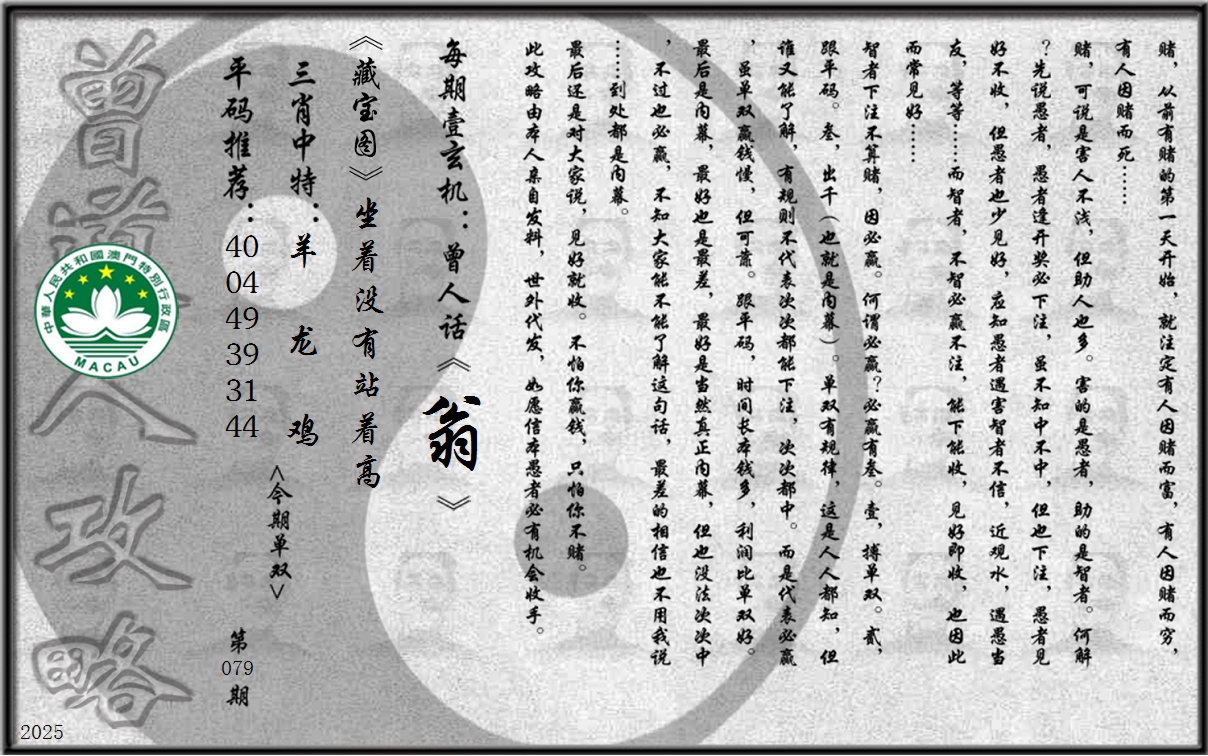 赌，从前有赌的第一天开始，就注定有人因赌而富，有人因赌而穷，
有人因赌而死……
赌，可说是害人不浅，但助人也多。害的是愚者，助的是智者。何解
？先说愚者，愚者逢开奖必下注，虽不知中不中，但也下注，愚者见
好不收，但愚者也少见好，应知愚者遇害智者不信，近观水，遇愚当
友，等等……而智者，不智必赢不注，能下能收，见好即收，也因此
而常见好……
智者下注不算赌，因必赢。何谓必赢？必赢有叁。壹，搏单双。贰，
跟平码。叁，出千（也就是内幕）。单双有规律，这是人人都知，但
谁又能了解，有规则不代表次次都能下注，次次都中。而是代表必赢
，虽单双赢钱慢，但可靠。跟平码，时间长本钱多，利润比单双好。
最后是内幕，最好也是最差，最好是当然真正内幕，但也没法次次中
，不过也必赢，不知大家能不能了解这句话，最差的相信也不用我说
……到处都是内幕。
最后还是对大家说，见好就收。不怕你赢钱，只怕你不赌。
此攻略由本人亲自发料，世外代发，如愿信本愚者必有机会收手。
每期壹玄机：曾人话《翁》
《藏宝图》坐着没有站着高
三肖中特：羊 龙 鸡
<今期单双>
平码推荐：40 04 49 39 31 44
第079期
曾道人攻略
中華人民共和國澳門特別行政區
MACAU
2025